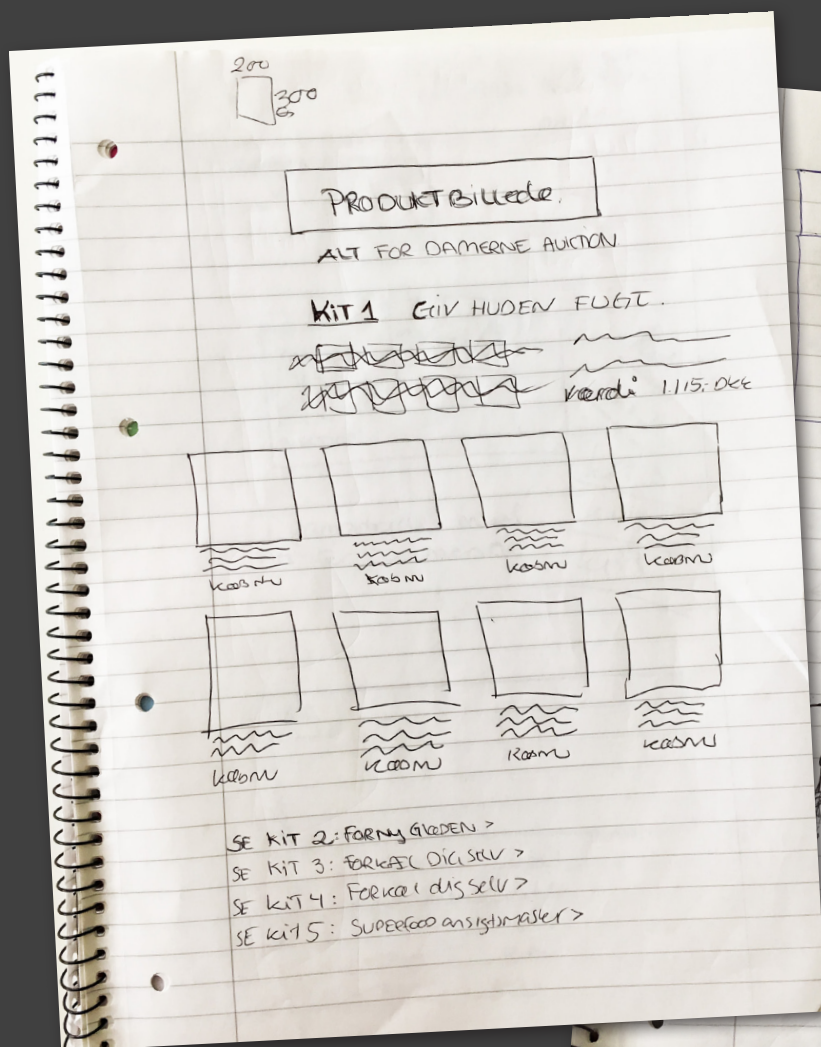 200
300
PRODUKTBillede.
ALT FOR DAMERNE AUKTION
KiT 1 GIV HUDEN FUGT.
Værdi 1115,- DKK
KøBNU
KøBNU
KøBNU
KøBNU
KøBNU
KøBNU
KøBNU
KøBNU
SE KiT 2: FORNY GLØDEN >
SE KiT 3: FORKÆL DIG SELV >
SE KiT 4: FORKæl dig selv >
SE kit 5: SUPERFOOD ansigtsmasker >